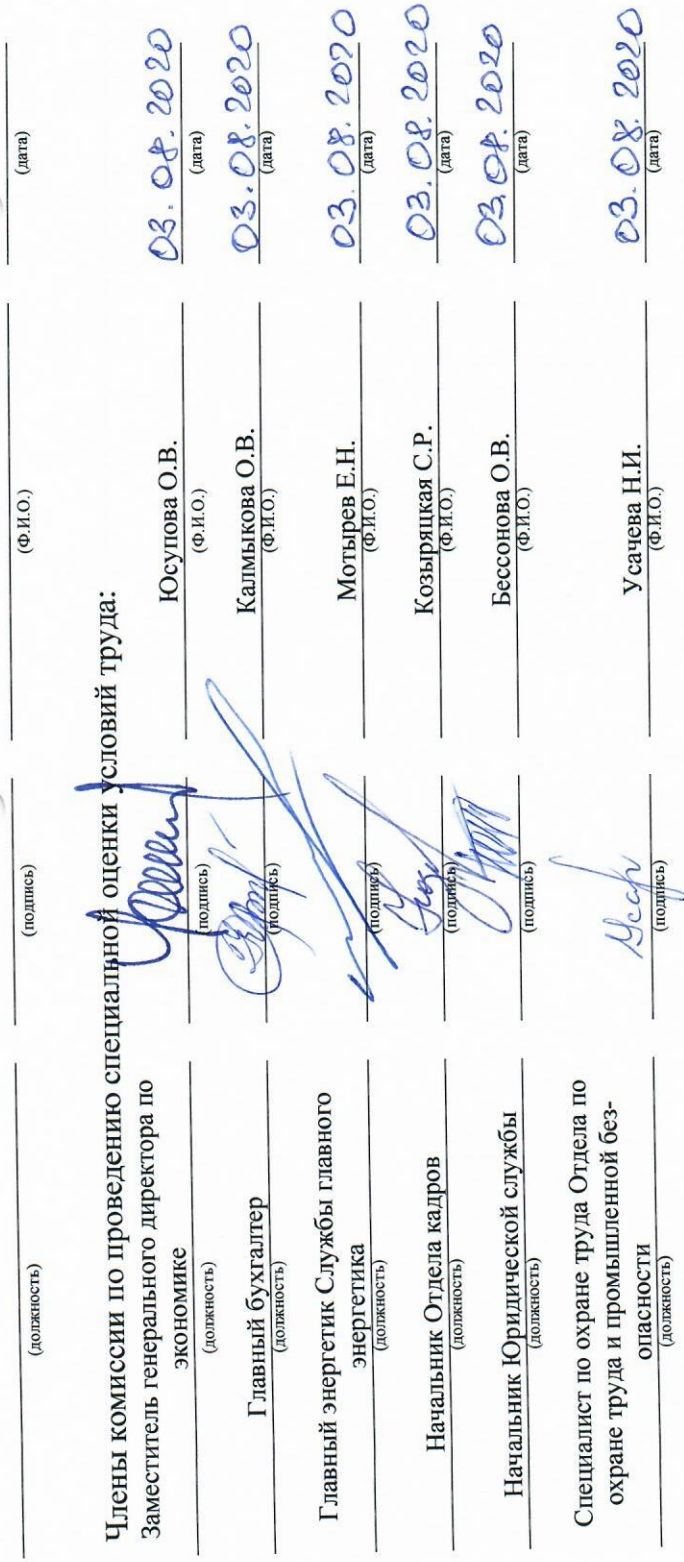 (должность) (подпись) (Ф.И.О.) (дата)
Члены комиссии по проведению специальной оценки условий труда:
Заместитель генерального директора по
экономике Юсупова О.В. 03.08.2020
(должность) (подпись) (Ф.И.О.) (дата)
Главный бухгалтер Калмыкова О.В. 03.08.2020
(должность) (подпись) (Ф.И.О.) (дата)
Главный энергетик Службы главного
энергетика Мотырев Е.Н. 03.08.2020
(должность) (подпись) (Ф.И.О.) (дата)
Начальник Отдела кадров Козыряцкая С.Р. 03.08.2020
(должность) (подпись) (Ф.И.О.) (дата)
Начальник Юридической службы Бессонова О.В. 03.08.2020
(должность) (подпись) (Ф.И.О.) (дата)
Специалист по охране труда Отдела по
охране труда и промышленной без-
опасности Усачева Н.И. 03.08.2020
(должность) (подпись) (Ф.И.О.) (дата)